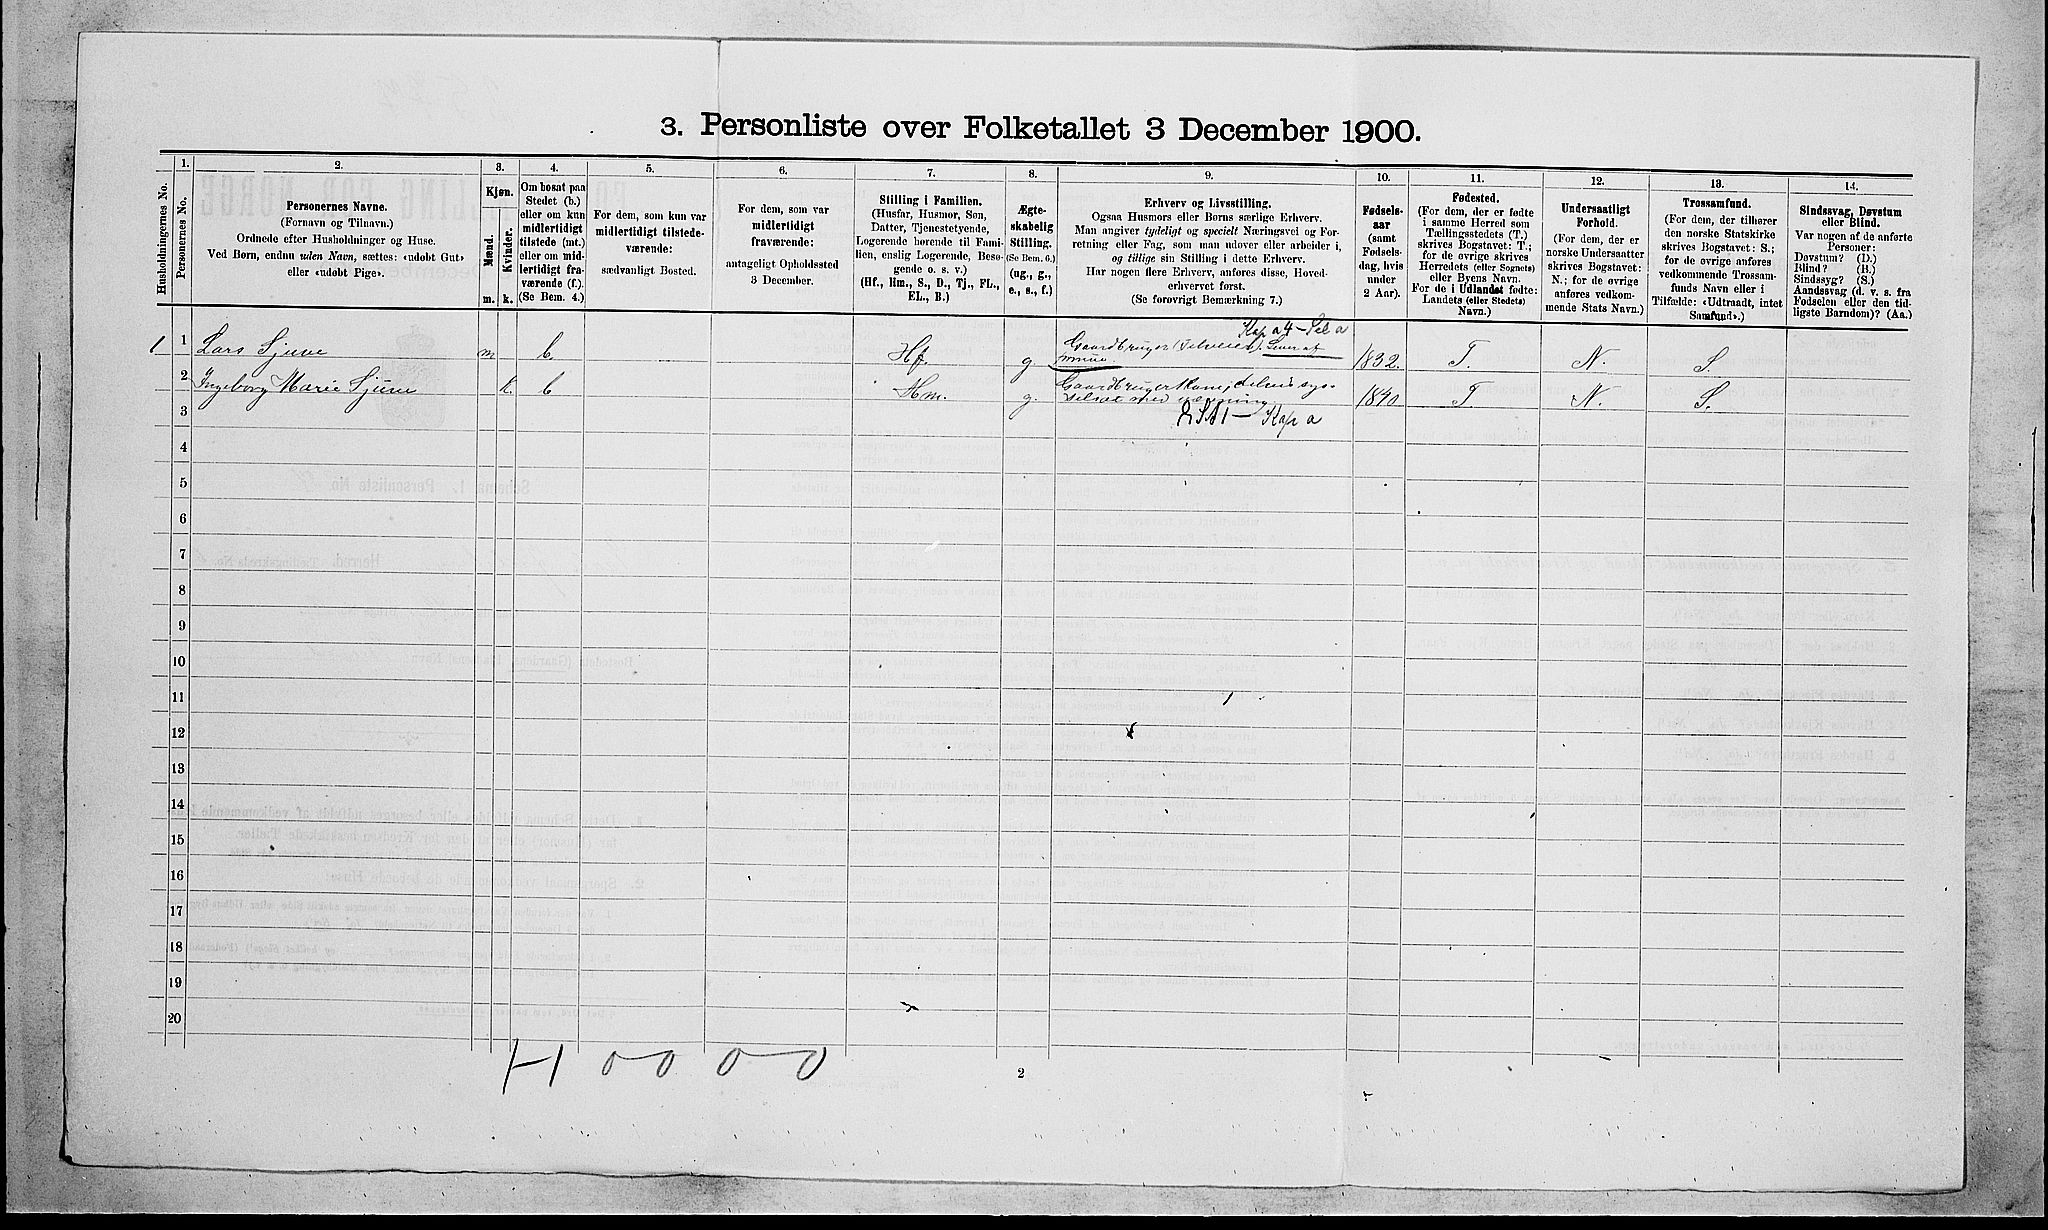 3. Personliste over Folketallet 3 December 1900.
Husholdningernes No.
1.
Personernes No.
2.
Personernes Navne.
(Fornavn og Tilnavn.)
Ordnede efter Husholdninger og Huse.
Ved Børn, endnu uden Navn, sættes: «udøbt Gut»
eller «udøbt Pige».
3.
Kjøn.
Mænd.
Kvinder.
m.
k.
4.
Om bosat paa
Stedet (b.)
eller om kun
midlertidigt
tilstede (mt.)
eller om mid-
lertidigt fra-
værende (f.).
(Se Bem. 4.)
5.
For dem, som kun var
midlertidigt tilstede-
værende:
sædvanligt Bosted.
6.
For dem, som var
midlertidigt
fraværende:
antageligt Opholdssted
3 December.
7.
Stilling i Familien.
(Husfar, Husmor, Søn,
Datter, Tjenestetyende,
Logerende hørende til Fami-
lien, enslig Logerende, Besø-
gende o. s. v.)
(Hf., Hm., S., D., Tj., FL.,
EL., B.)
8.
Ægte-
skabelig
Stilling.
(Se Bem. 6.)
(ug., g.,
e., s., f.)
9.
Erhverv og Livsstilling.
Ogsaa Husmors eller Børns særlige Erhverv.
Man angiver tydeligt og specielt Næringsvei og For-
retning eller Fag, som man udøver eller arbeider i,
og tillige sin Stilling i dette Erhverv.
Har nogen flere Erhverv, anføres disse, Hoved-
erhvervet først.
(Se forøvrigt Bemærkning 7.)
10.
Fødsels-
aar
(samt
Fødsels-
dag, hvis
under
2 Aar).
11.
Fødested.
(For dem, der er fødte
i samme Herred som
Tællingsstedets (T.)
skrives Bogstavet: T.;
for de øvrige skrives
Herredets (eller Sognets)
eller Byens Navn.
For de i Udlandet fødte:
Landets (eller Stedets)
Navn.)
12.
Undersaatligt
Forhold.
(For dem, der er
norske Undersaatter
skrives Bogstavet:
N.; for de øvrige
anføres vedkom-
mende Stats Navn.)
13.
Trossamfund.
(For dem, der tilhører
den norske Statskirke
skrives Bogstavet: S.;
for de øvrige anføres
vedkommende Trossam-
funds Navn eller i
Tilfælde: «Udtraadt, intet
Samfund».)
14.
Sindssvag, Døvstum
eller Blind.
Var nogen af de anførte
Personer:
Døvstum? (D.)
Blind? (B.)
Sindssyg? (S.)
Aandssvag (d. v. s. fra
Fødselen eller den tid-
ligste Barndom)? (Aa.)
Kap a4 - Sel a
1 1 Lars Sjuve m b. Hf. g Gaardbruger (Selveier). Lever af 1832. T. N. S.
2 Ingeborg Marie Sjuve k. b Hm. g. Gaardbrugerkone, 1840 T N. S.
selsat med
3
Kap a
4
5
6
7
8
9
10
11
12
13
14
15
16
17
18
19
20
0 0 0 0
2